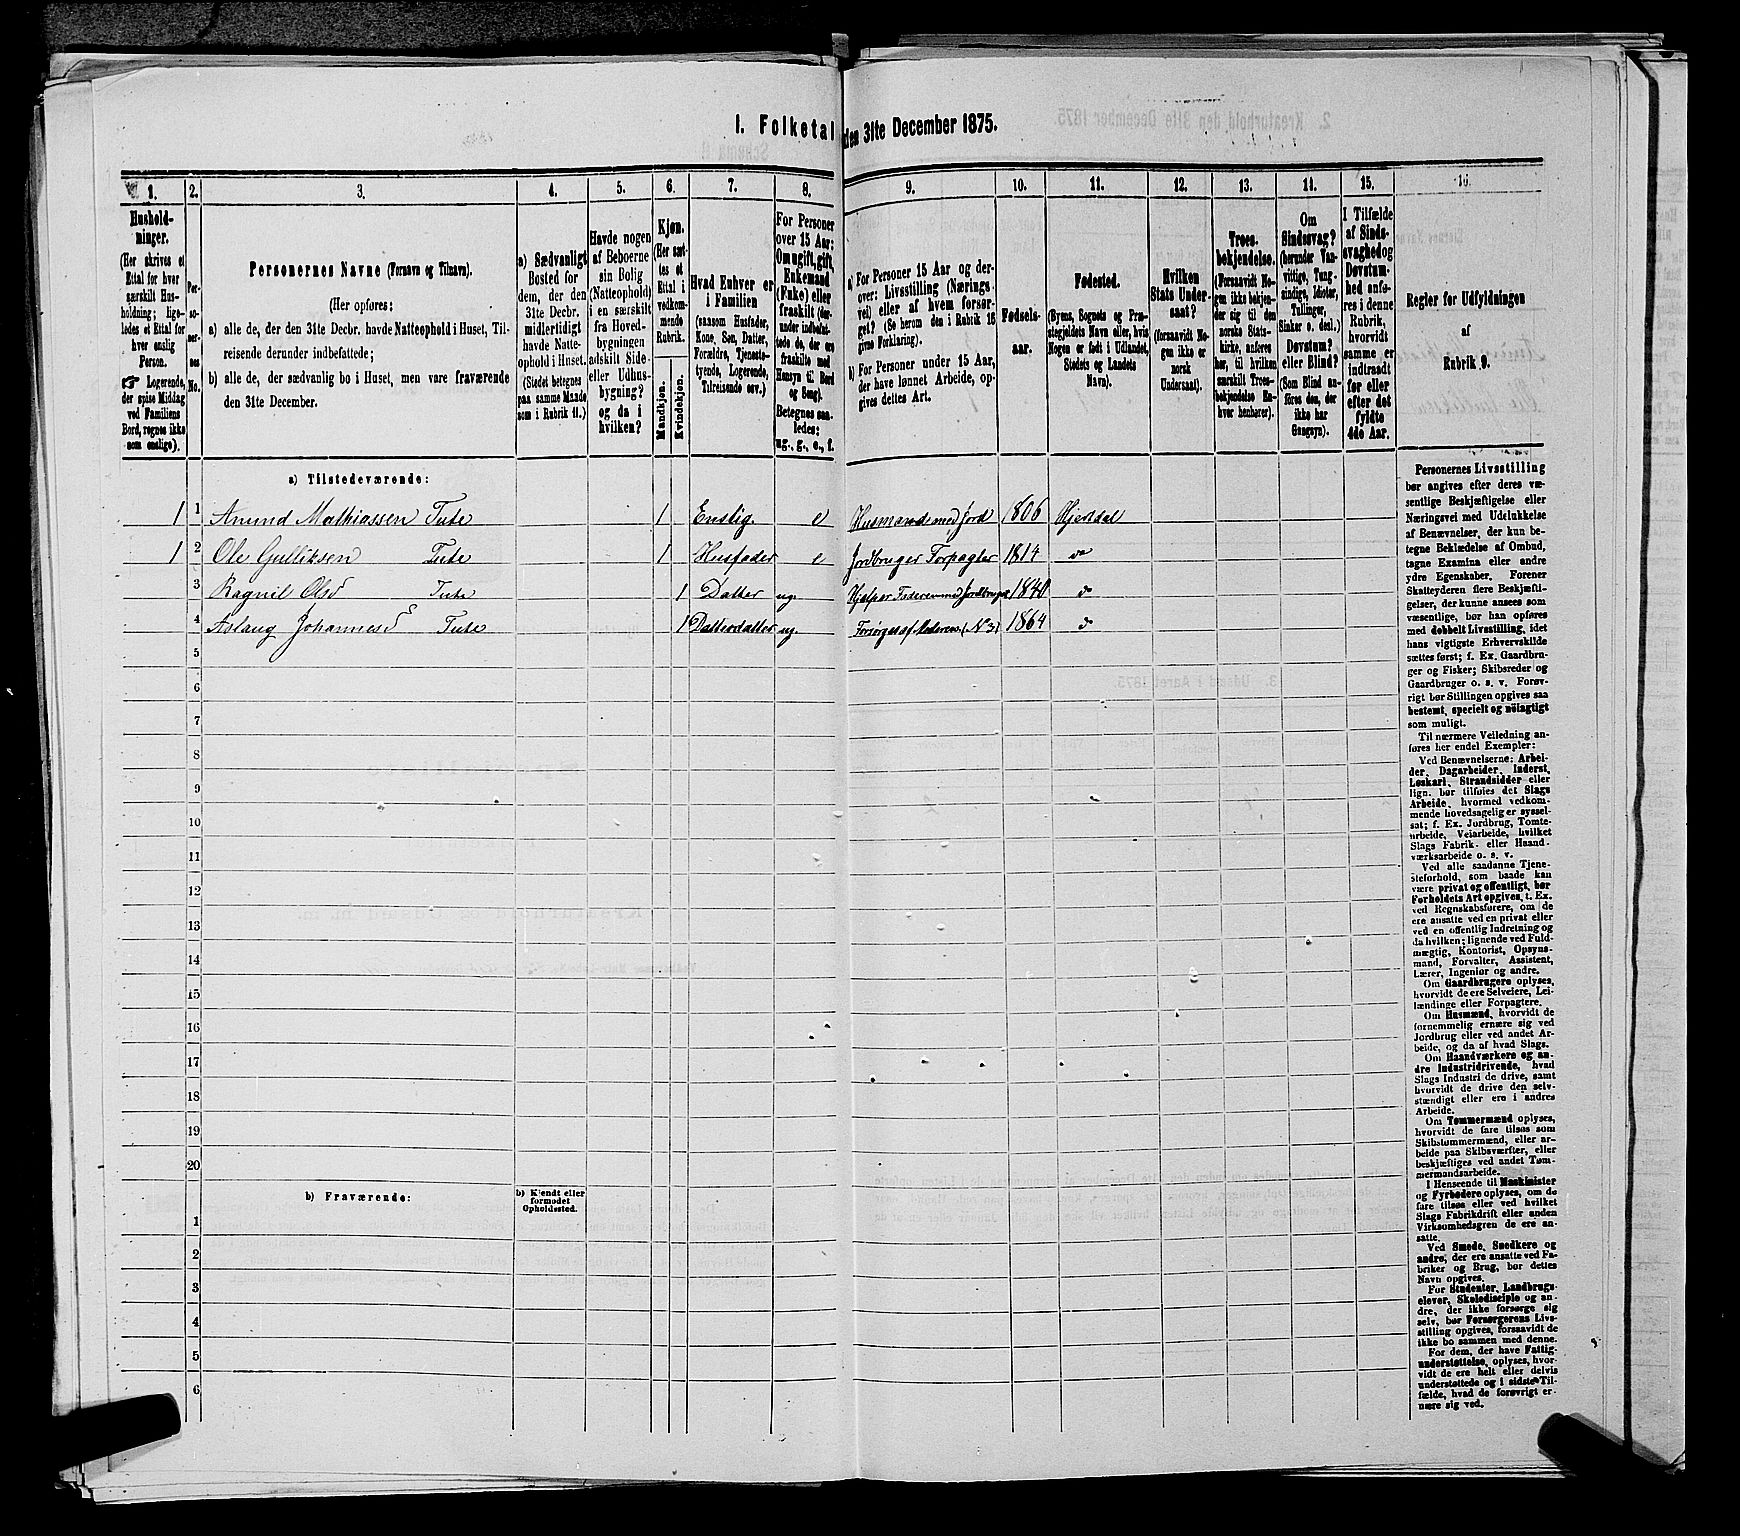 1. Folketal den 31te December 1875.
1. 2. 3. 4. 5. 6. 7. 8. 9. 10. 11. 12. 13. 14. 15. 16.
Hushold-
ninger.
(Her skrives et
Ettal for hver
særskilt Hus-
holdning; lige-
ledes et Ettal for
hver enslig
Person.
☞ Logerende,
der spise Middag
ved Familiens
Bord, regnes ikke
som enslige).
Per-
so-
ner-
nes
No.
Personernes Navne (Fornavn og Tilnavn).
(Her opføres:
a) alle de, der den 31te Decbr. havde Natteophold i Huset, Til-
reisende derunder indbefattede;
b) alle de, der sædvanlig bo i Huset, men vare fraværende
den 31te December.
a) Sædvanligt
Bosted for
dem, der den
31te Decbr.
midlertidigt
havde Natte-
ophold i Huset.
(Stedet betegnes
paa samme Maade
som i Rubrik 11.)
Havde nogen
af Beboerne
sin Bolig
(Natteophold)
i en særskilt
fra Hoved-
bygningen
adskilt Side-
eller Udhus-
bygning?
og da i
hvilken?
Kjøn.
(Her sæt-
tes et
Ettal i
vedkom-
mende
Rubrik.
Mandkjøn.
Kvindekjøn.
Hvad Enhver er
i Familien
(saasom Husfader,
Kone, Søn, Datter,
Forældre, Tjenests-
tyende, Logerende,
Tilreisende osv.)
For Personer
over 15 Aar:
Om ugift, gift,
Enkemand
(Enke) eller
fraskilt (der-
under indbefat-
tede de, der ere
fraskilte med
Hensyn til Bord
og Seng).
Betegnes saa-
ledes:
ug., g., e., f.
a) For Personer 15 Aar og der-
over: Livsstilling (Nærings-
vei) eller af hvem forsør-
get? (Se herom den i Rubrik 16
givne Forklaring).
b) For Personer under 15 Aar,
der have lønnet Arbeide, op-
gives dettes Art.
Fødsels-
aar.
Fødested.
(Byens, Sognets og Præ-
stegjeldets Navn eller, hvis
Nogen er født i Udlandet,
Stedets og Landets
Navn).
Hvilken
Stats Under-
saat?
(forsaavidt No-
gen ikke er
norsk
Undersaat).
Troes-
bekjendelse.
(Forsaavidt No-
gen ikke bekjen-
der sig til den
norske Stats-
kirke, anføres
her, til hvilken
særskilt Troes-
bekjendelse En-
hver henhører).
Om
Sindssvag?
(herunder Van-
vittige, Tung-
sindige, Idioter,
Tullinger,
Sinker o. desl.)
Døvstum?
eller Blind?
(Som Blind an-
føres den, der
ikke har
Gangsyn).
I Tilfælde
af Sinds-
svaghed og
Døvstum-
hed anfø-
res i denne
Rubrik,
hvorvidt
samme er
indtraadt
før eller
efter det
fyldte
4de Aar.
Regler for Udfyldningen
af
Rubrik 9.
a) Tilstedeværende:
1 1 Amund Mathiassen Tute 1 Enslig. e Husmand med Jord 1806 Hjertdal
1 2 Ole Gulliksen Tute 1 Husfader e Jordbruger Forpagter 1814 do
3 Ragnil Olsd Tute 1 Datter ug. Hjelper Faderen med Jordbruget 1840 do
4 Aslaug Johannesd Tute 1 Datterdatter ug. Forsørges af Moderen (No 3) 1864 do
5
6
7
8
9
10
11
12
13
14
15
16
17
18
19
20
b) Fraværende:
b) Kjendt eller
formodet
Opholdssted.
1
2
3
4
5
6
Personernes Livsstilling
bør angives efter deres væ-
sentlige Beskjæftigelse eller
Næringsvei med Udelukkelse
af Benævnelser, der kun be-
tegne Beklædelse af Ombud,
tagne Examina eller andre
ydre Egenskaber. Forener
Skatteyderen flere Beskjæfti-
gelser, der kunne ansees som
væsentlige, bør han opføres
med dobbelt Livsstilling, idet
hans vigtigste Erhvervskilde
sættes først; f. Ex. Gaardbru-
ger og Fisker; Skibsreder og
Gaardbruger o. s. v. Forøv-
rigt bør Stillingen opgives saa
bestemt, specielt og nöiagtigt
som muligt.
Til nærmere Veiledning an-
føres her endel Exempler:
Ved Benævnelserne: Arbei-
der, Dagarbeider, Inderst,
Løskarl, Strandsidder eller
lign. bør tilføies det Slags
Arbeide, hvormed vedkom-
mende hovedsagelig er syssel-
sat; f. Ex. Jordbrug, Tomte-
arbeide, Veiarbeide, hvilket
Slags Fabrik- eller Haand-
værksarbeide o. s. v.
Ved alle saadanne Tjene-
steforhold, som baade kan
være privat og offentligt, bør
Forholdets Art opgives, t. Ex.
ved Regnskabsførere, om de
ere ansatte ved en privat eller
ved en offentlig Indretning og
da hvilken; lignende ved Fuld-
mægtig, Kontorist, Opsyns-
mand, Forvalter, Assistent,
Lærer, Ingeniør og andre.
Om Gaardbrugere oplyses,
hvorvidt de ere Selveiere, Lei-
lændinge eller Forpagtere.
Om Husmænd, hvorvidt de
fornemmelig ernære sig ved
Jordbrug eller ved andet Ar-
beide, og da af hvad Slags.
Om Haandværkere og an-
dre Industridrivende, hvad
Slags Industri de drive, samt
hvorvidt de drive den selv-
stændigt eller ere i andres
Arbeide.
Om Tømmermænd oplyses,
hvorvidt de fare tilsøs som
Skibstømmermænd, eller ar-
beide paa Skibsværfter, eller
beskjæftiges ved andet Tøm-
mermandsarbeide.
I Henseende til Maskinister
og Fyrbødere oplyses, om de
fare tilsøs eller ved hvilket
Slags Fabrikdrift eller anden
Virksomhedsgren de ere an-
satte.
Ved Smede, Snedkere og
andre, der ere ansatte ved Fa-
briker og Brug, bør dettes
Navn opgives.
For Studenter, Landbrugs-
elever, Skoledisciple og an-
dre, der ikke forsørge sig
selv, bør Forsørgerens Livs-
stilling opgives, forsaavidt de
ikke bo sammen med denne.
For dem, der have Fattig-
understøttelse, oplyses, hvor-
vidt de ere helt eller delvis
understøttede og i sidste Til-
fælde, hvad de forøvrigt er-
nære sig ved.